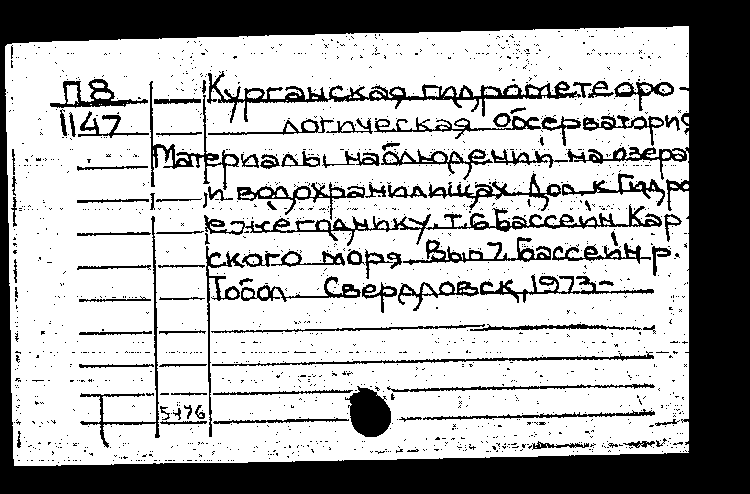 П8 Курганская гидрометеоро-
1147 логическая обсерватория
Материалы наблюдений на озерах
и водохранилищах. Доп. к Гидро
ежегоднику. т.6 Бассейн Кар-
ского моря. Вып 7. Бассейн р.
Тобол Свердловск, 1973-
5476